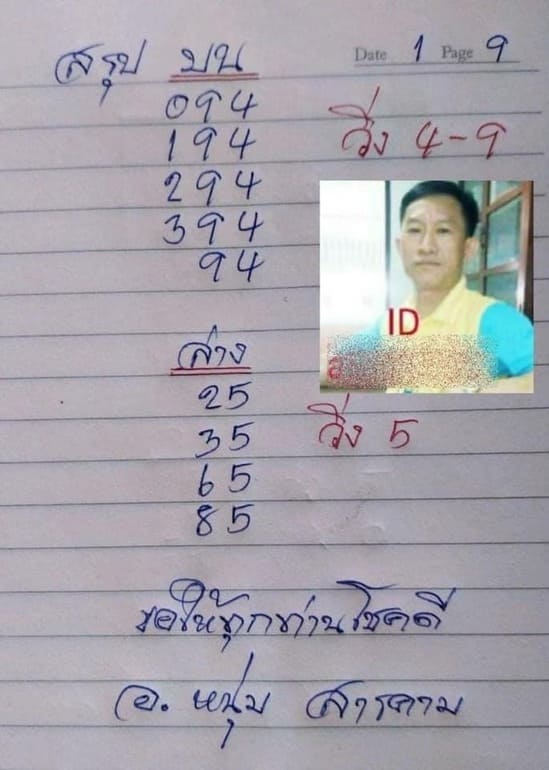 Date 1 Page 9
สรุป บน
094
194
วิ่ง 4-9
294
394
94
ID
ล่าง
25
35
วิ่ง 5
65
85
ขอให้ทุกท่านโชคดี
อ. หนุ่ม สารคาม